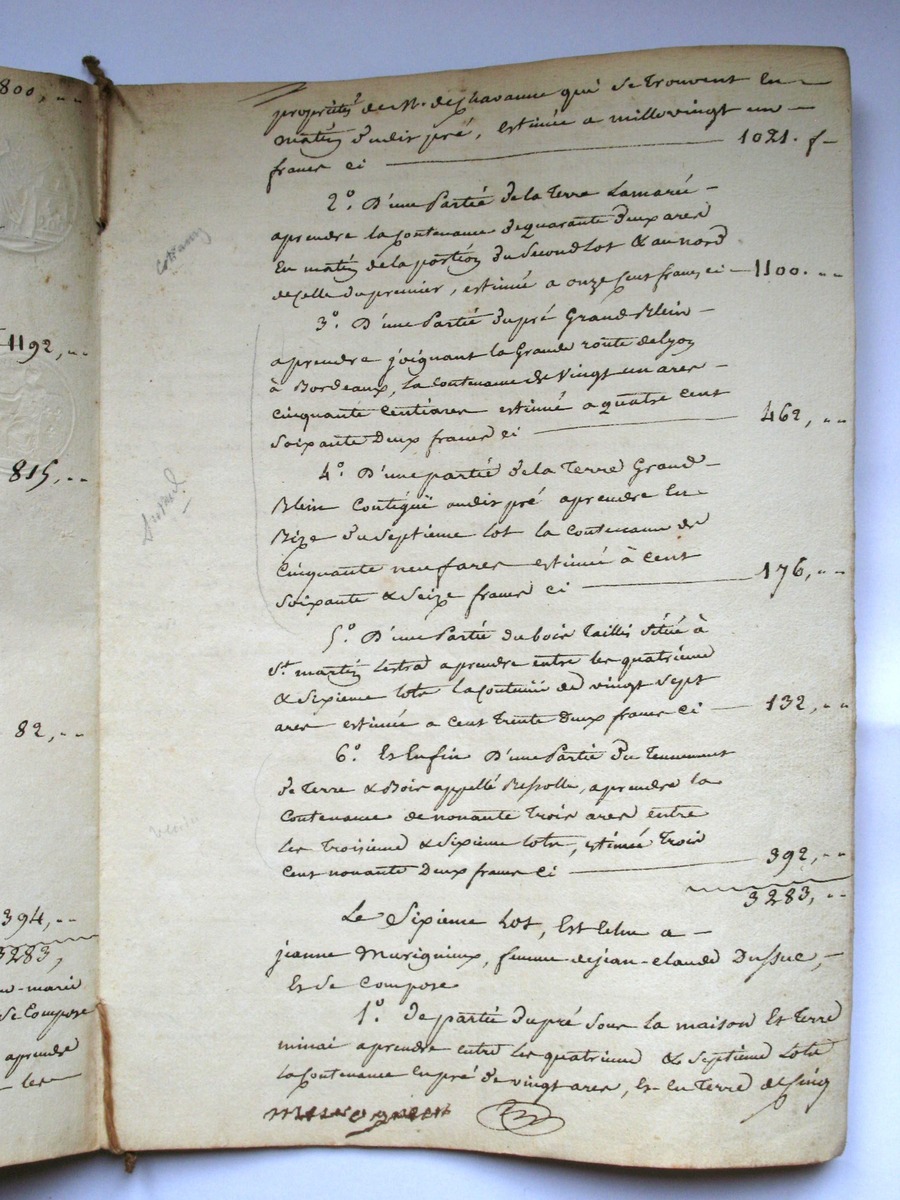 800, --
1192, --
815, --
82, --
394, --
3283,
-marie
se Compose
aprendre
les
propriétés de Mr. de Chavanne qui se trouvent En
matin dudit pré, estimée a mille vingt un
francs ci 1021. f
2º. D'une Partie de la Terre Lamarie
aprendre la Contenance de quarante deux ares
En matin de la portion du Second Lot & au nord
de Celle du premier, estimée a onze Cent francs ci 1100. --
3º. D'une Partie du pré Grand Blein
aprendre joignant la Grande route de Lyon
à Bordeaux, la Contenance de Vingt un ares
Cinquante Centiares estimée a quatre Cent
Soixante Deux francs ci 462, --
4º. D'une partie de la Terre Grand
Blein Contiguë audit pré aprendre En
Bize du Septième Lot la Contenance de
Cinquante neuf ares estimée à Cent
Soixante & Seize francs Ci 176, --
5º. D'une Partie du bois Taillis Située à
St. martin Lestra aprendre entre les quatrième
& Sixieme Lots la Contenue de vingt Sept
ares estimée a Cent Trente Deux francs Ci 132, --
6º. Et Enfin D'une Partie du Tennement
de Terre & Bois appellé Ressolle, aprendre la
Contenance de nonante Trois ares entre
Les Troisieme & Sixieme Lots, estimée Trois
Cent nonante Deux francs Ci 392, --
3283, --
Le Sixieme Lot, Est Echu a
jeanne Murigneux, femme de jean-claude Dussuc,
Et Se Compose
1º. De partie du pré Sous La maison Et Terre
minai aprendre entre les quatrieme & Septième Lots
La Contenance En pré de vingt ares, Et En Terre de Cinq